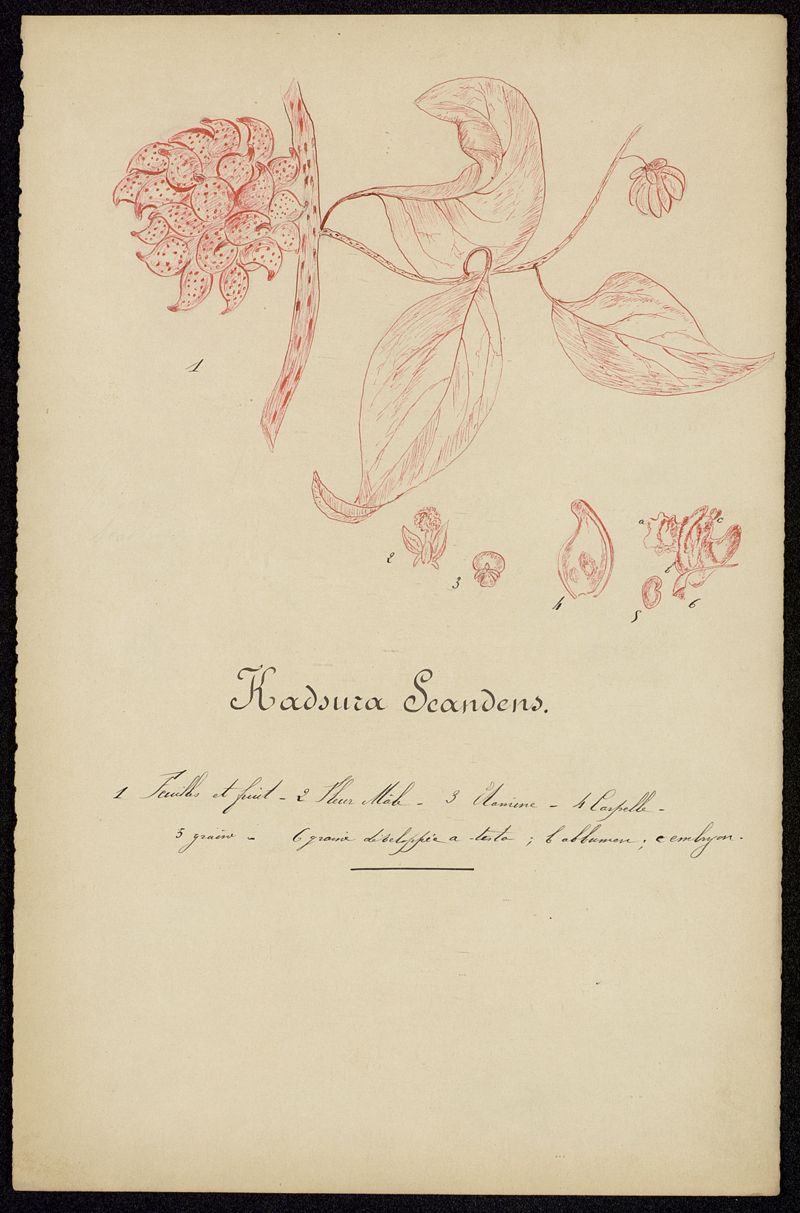 1
2
3
4
5
6
a
b
c
Kadsura Scandens.
1 Feuilles et fruit - 2 Fleur Mâle - 3 Etamine - 4 Carpelle -
5 graine - 6 graine développée a testa ; b albumen ; c embryon.